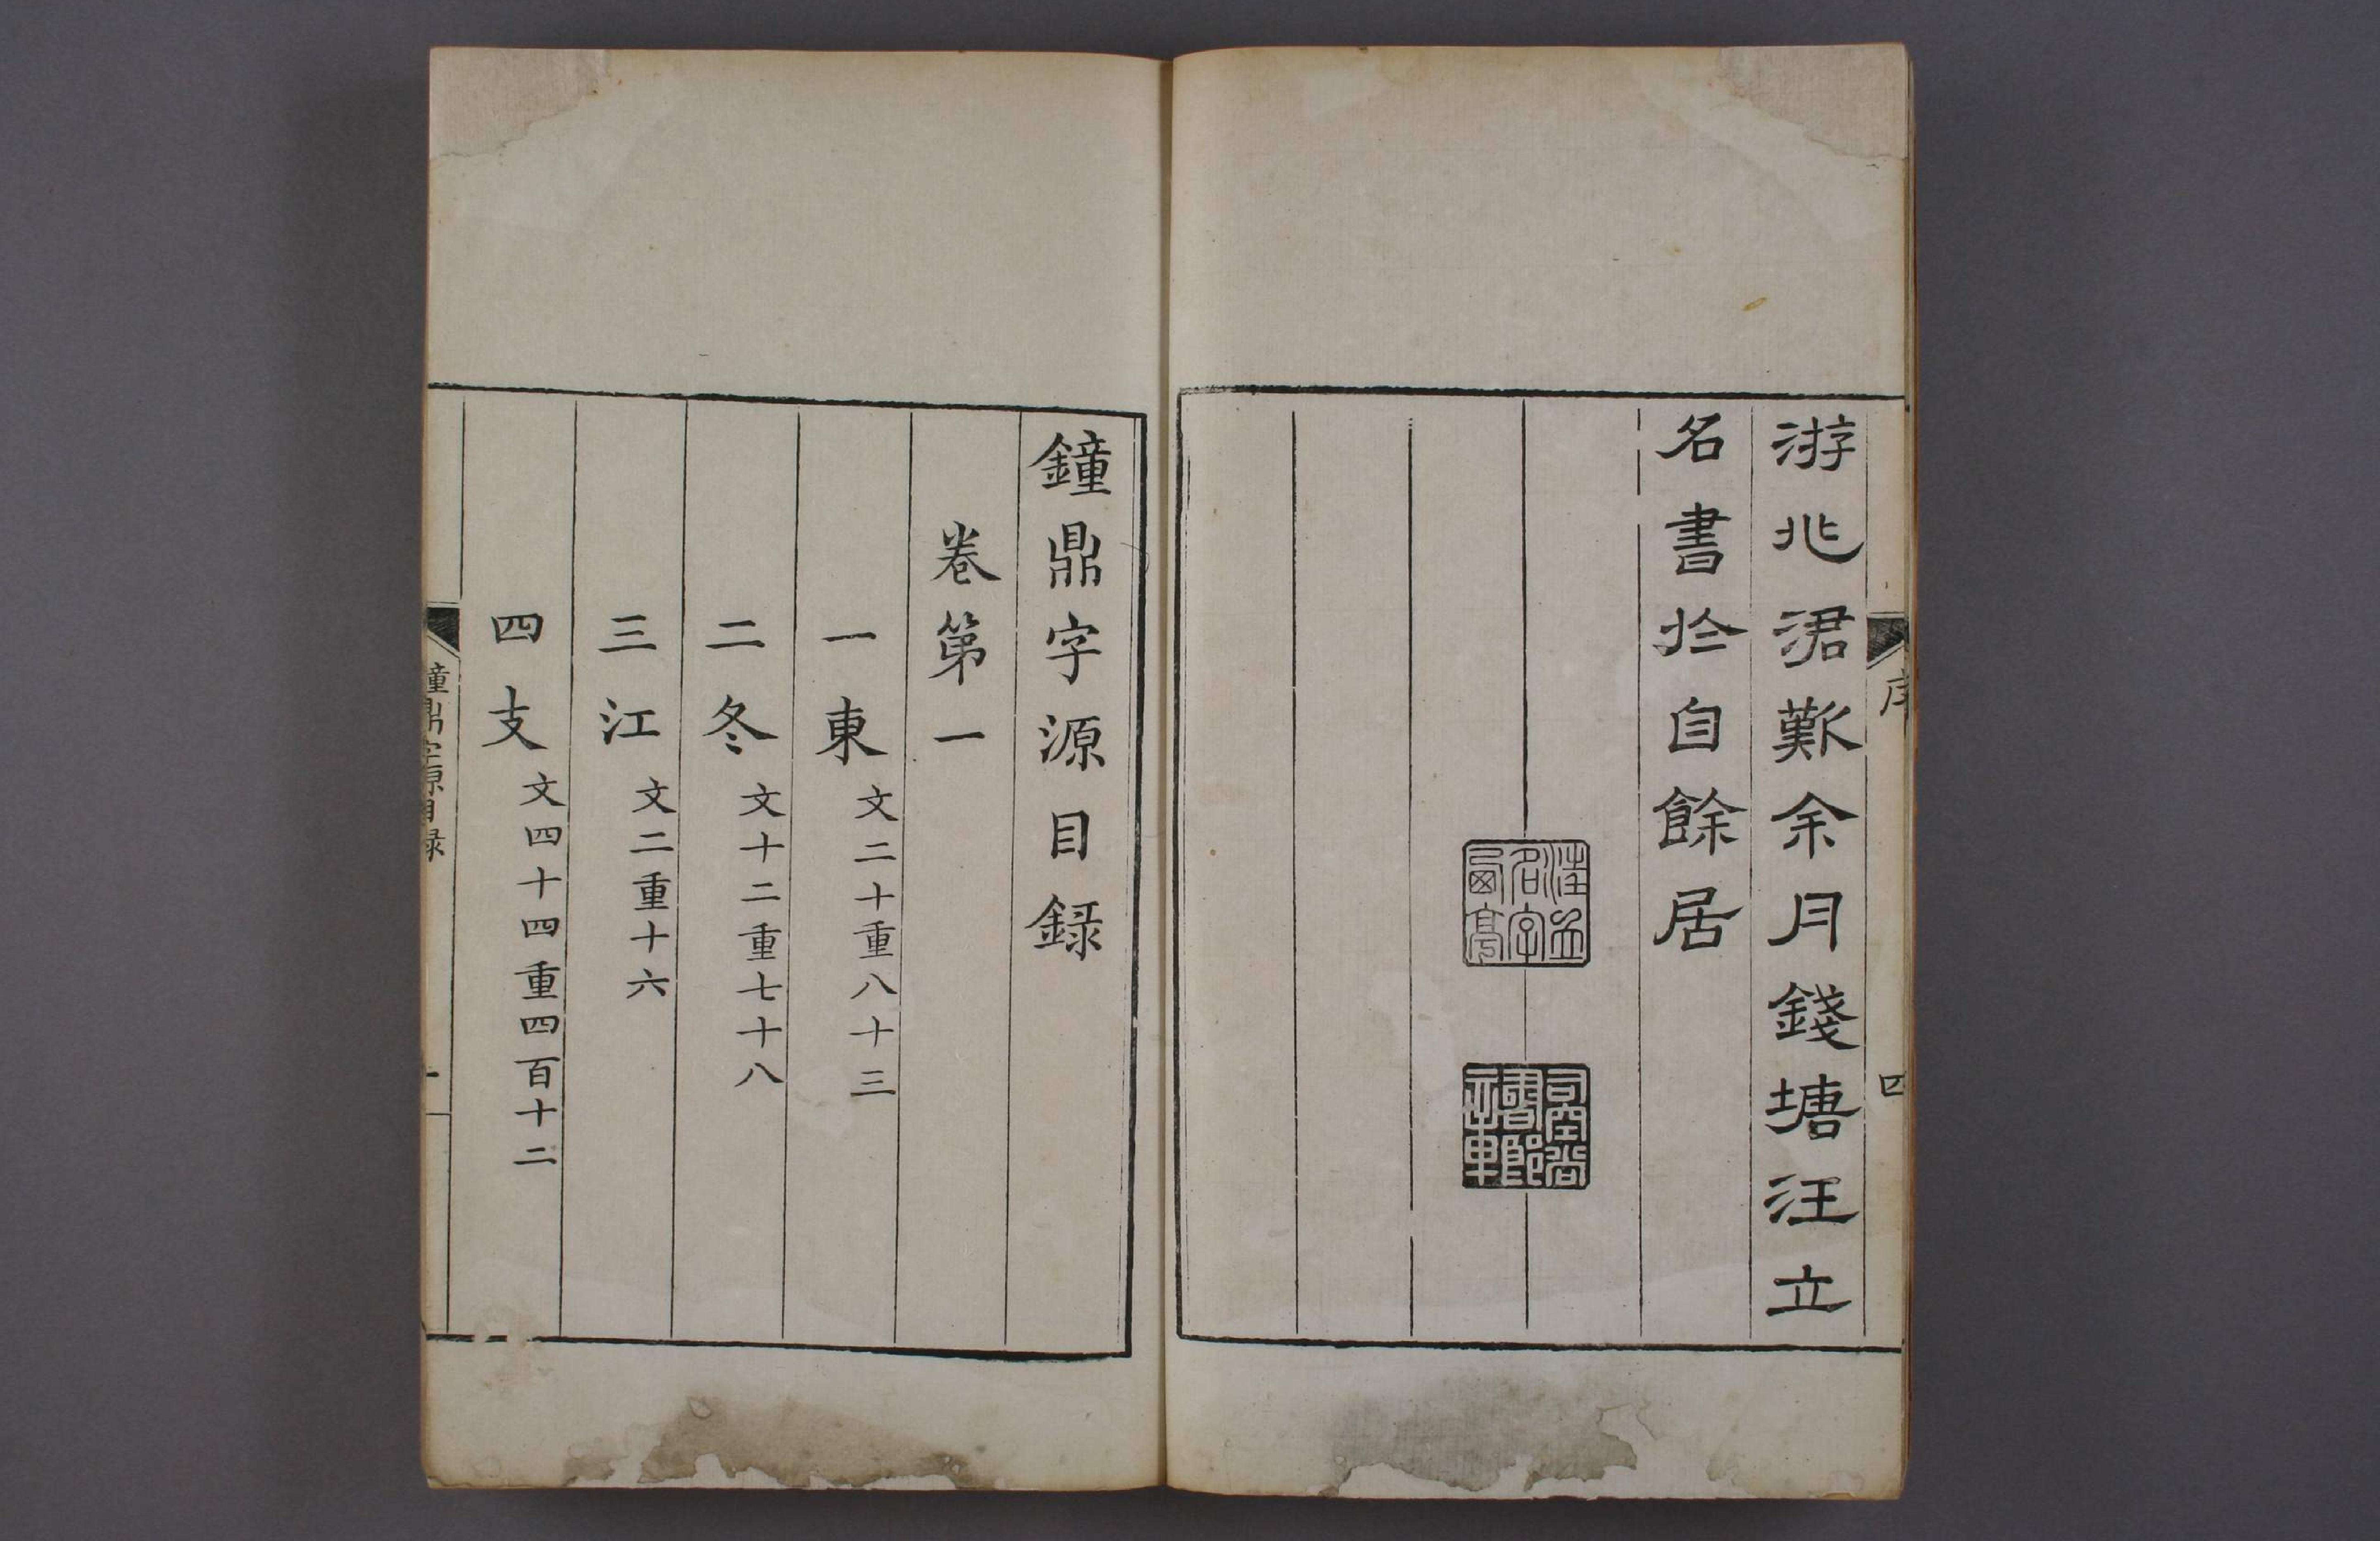 序
四
游兆涒歎余月錢塘汪立
名書扵自餘居
汪立名字西亭
鐘鼎字源目録
卷第一
一東 文二十重八十三
二冬 文十二重七十八
三江 文二重十六
四支 文四十四重四百十二
鐘鼎字源目録
一